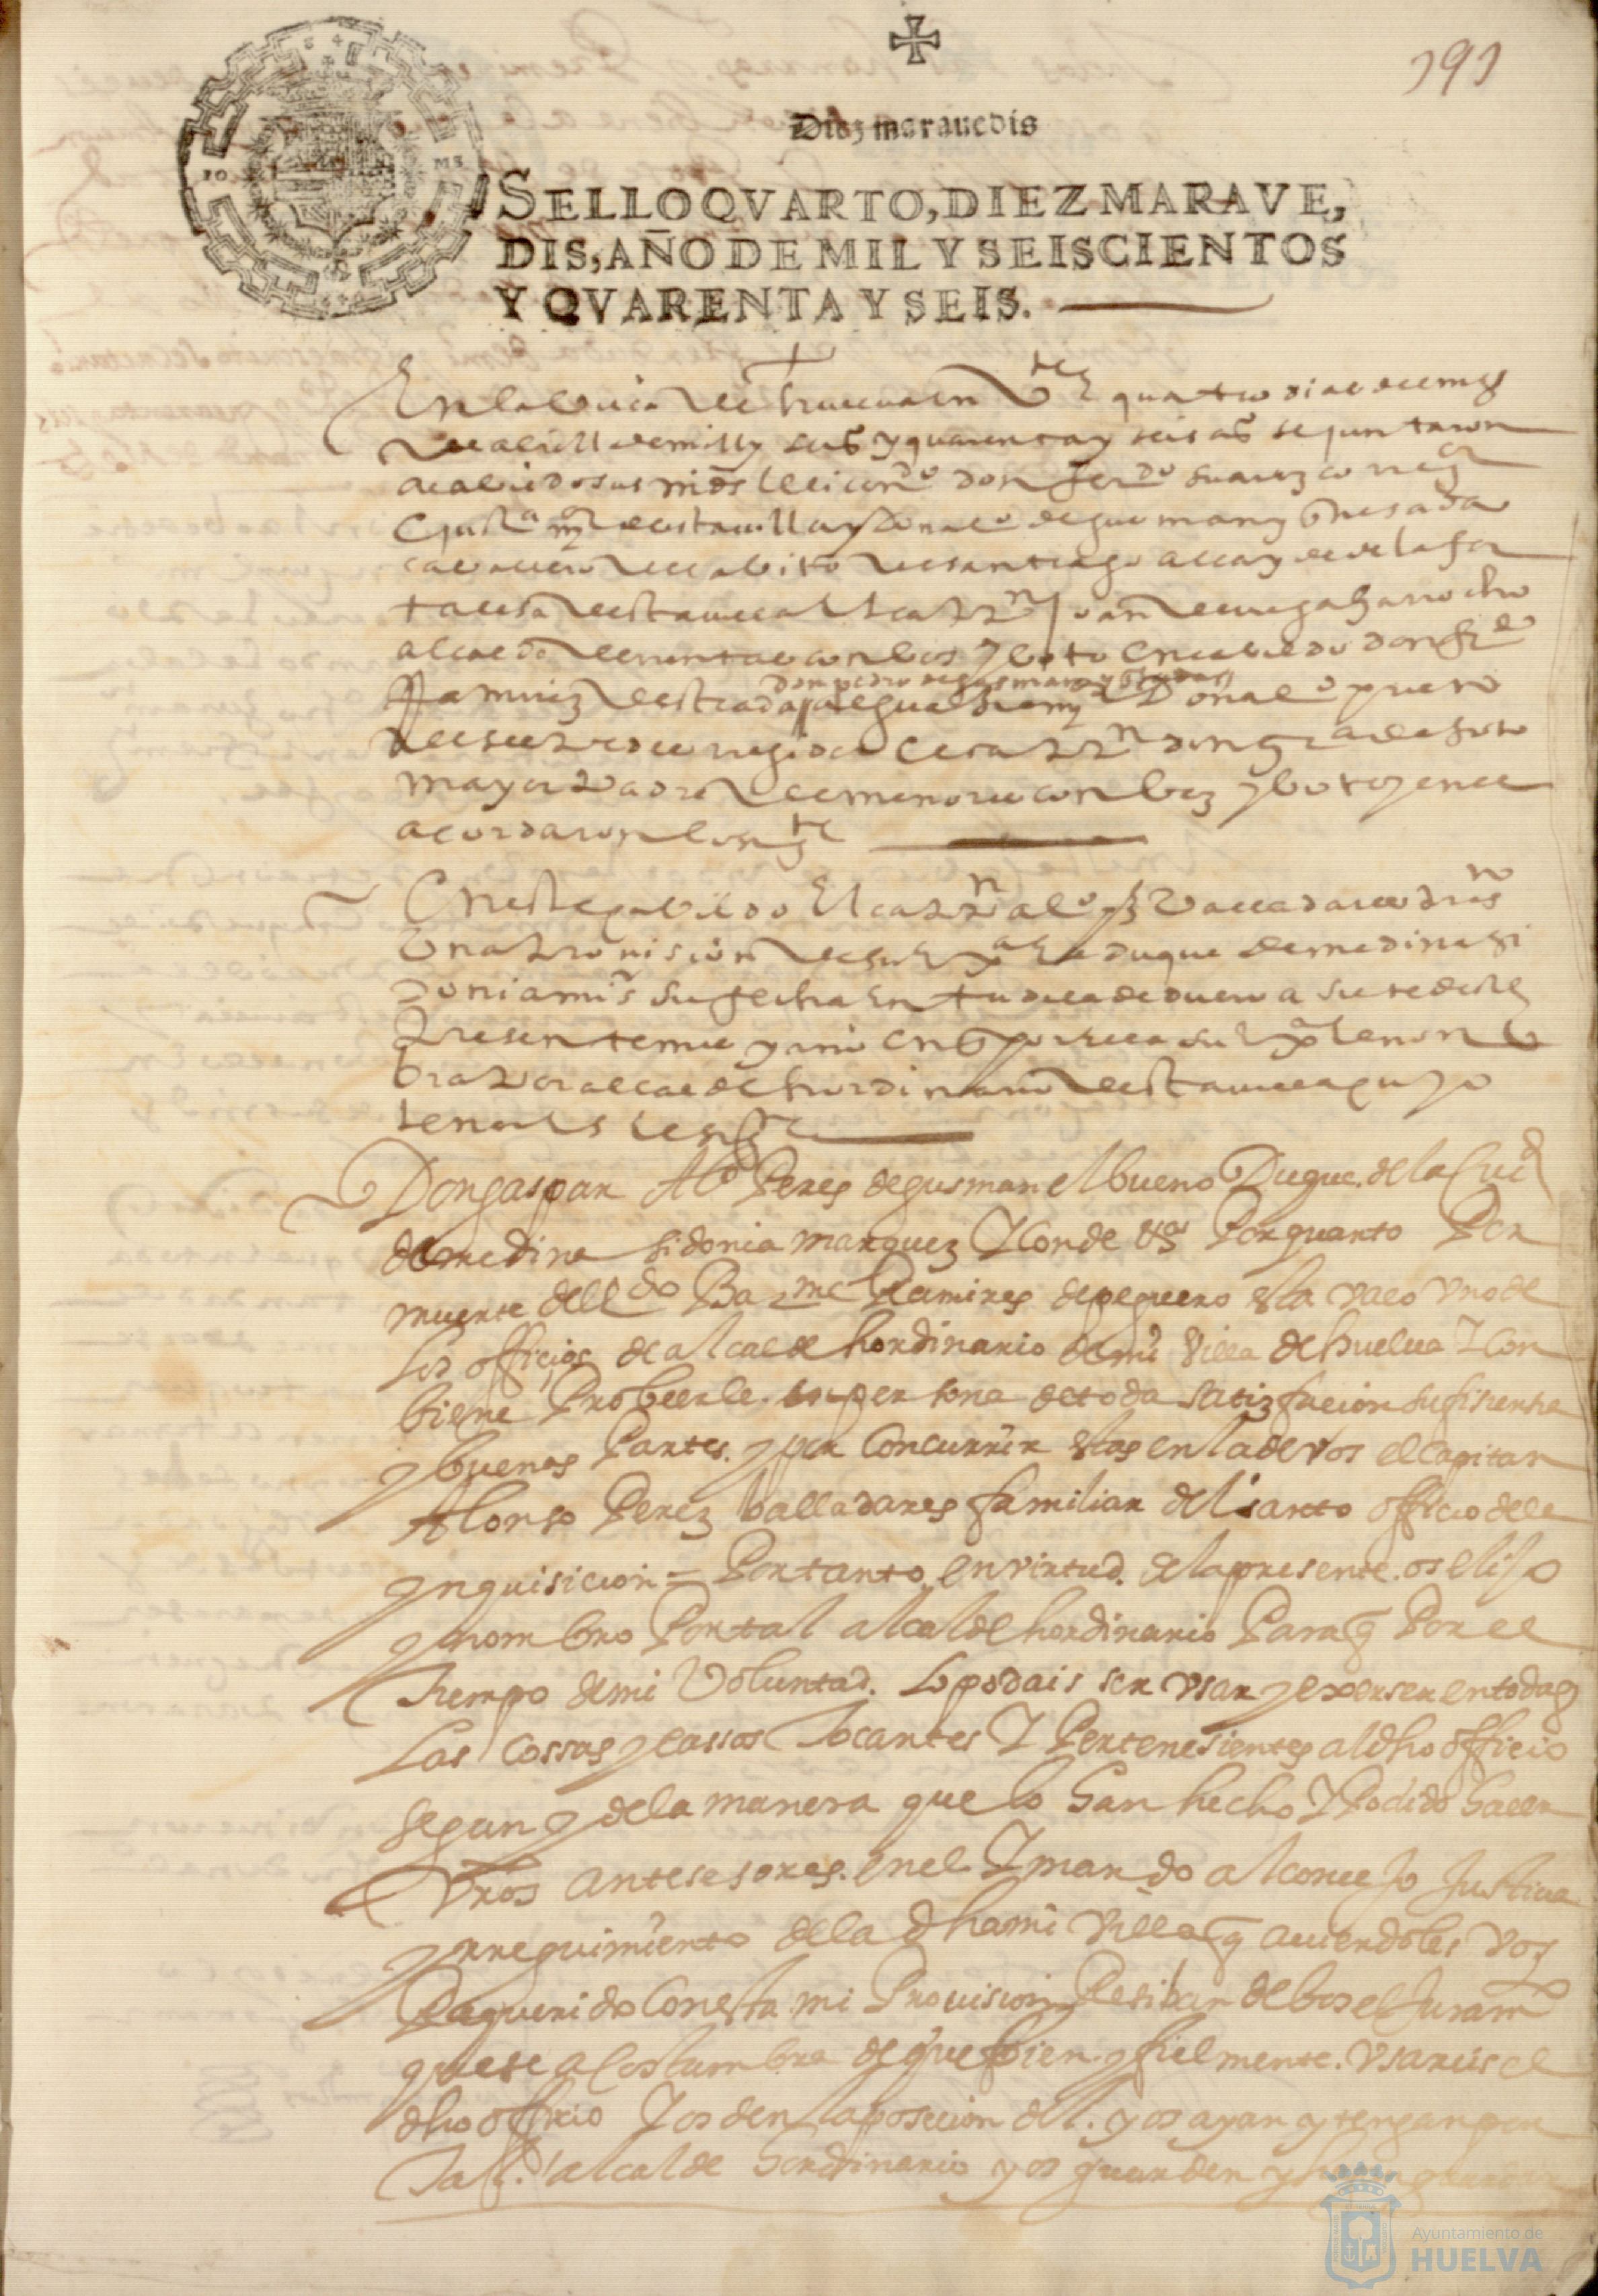 191
Diez marauedis
SELLO QVARTO, DIEZ MARAVE,
DIS, AÑO DE MIL Y SEISCIENTOS
Y QVARENTA Y SEIS.
En la villa de huelva en quatro dias del mes
de abrill de mill y seis y quarenta y seis as se juntaron
a cabildo sus mds el licendo don ferdo suarez corregor
e justa mor desta villa y don alo de guzman y quesada
cavallero del abito de santiago alcayde de la for
taleza desta villa el cappn joan de vega garrocho
alcalde con bos y boto en cabildo don
don pedro de guzman y
Ramirez destrada
regidor el cappn don
mayor de menores con boz y boto y en el
acordaron lo sigte
En este cavildo el cappn alo pz valladares
una provision de su exa el duque de medina si
donia mi sr su fecha en tudela de duero a siete deste
presente mes y año en q por ella su exa le non
bra por alcalde hordinario desta villa cuyo
tenor es el sigte
Don gaspar Alo Peres de gusman el bueno Duque de la Ciud
de medina sidonia marquez Y Conde &a Por quanto Por
muerte del ldo Barme Ramires de peguero esta vaco vno de
los officios de alcalde hordinario de mi villa de huelua Y Con
biene Probeerle en persona de toda satizfacion sufisiente
y buenas Partes. y por Concurrir estas en la de vos el Capitan
Alonso Perez balladares familiar del santo officio de la
ynquisicion = Por tanto en virtud de la presente os elijo
y nombro Por tal alcalde hordinario Para q Por el
tiempo de mi Voluntad. lo podais ser vsar y exerser en todas
las Cossas y cassos tocantes Y Pertenesientes al dho officio
segun y de la manera que lo han hecho Y Podido hacer
Vros antesesores en el Y mando al concejo Justicia
y rreguimiento de la dha mi villa q auiendoles vos
Requerido Con esta mi Prouision Resiban de bos el Juramto
que se acostumbra de que bien y fielmente vsareis el
dho officio Y os den la posecion del. y os ayan y tengan por
tal alcalde hordinario y os guarden y hagan guardar
Ayuntamiento de
HUELVA